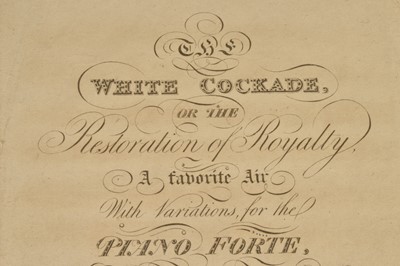 THE
WHITE COCKADE,
OR THE
Restoration of Royalty,
A favorite Air
With Variations, for the
PIANO FORTE,